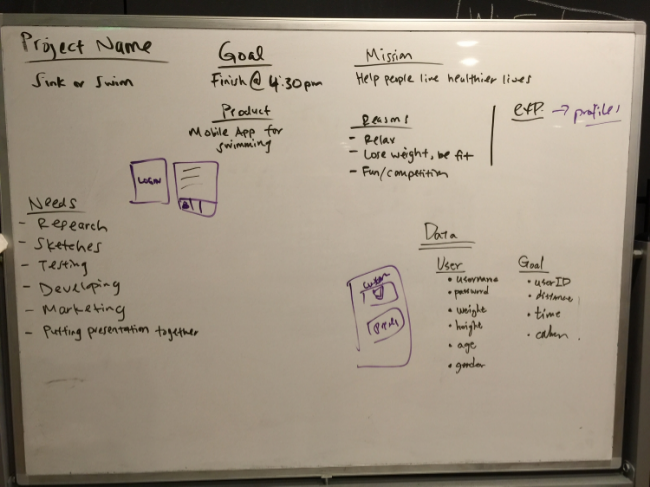 Project Name
Sink or Swim
Goal
Finish @ 4:30pm
Mission
Help people live healthier lives
Product
Mobile App for
swimming
Reasons
- Relax
- Lose weight, be fit
- Fun/competition
→ profiles
LOGIN
Needs
- Research
- Sketches
- Testing
- Developing
- Marketing
- Putting presentation together
Data
User
• username
• password
• weight
• height
• age
• gender
Goal
• userID
• distance
• time